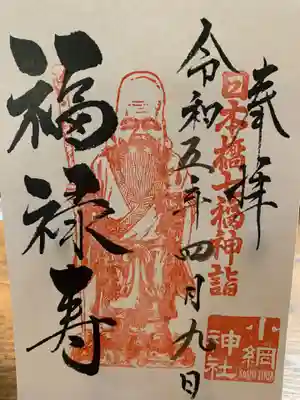 奉拝
日本橋七福神詣
令和五年四月九日
福禄寿
小網
神社
KOAMI JINJA